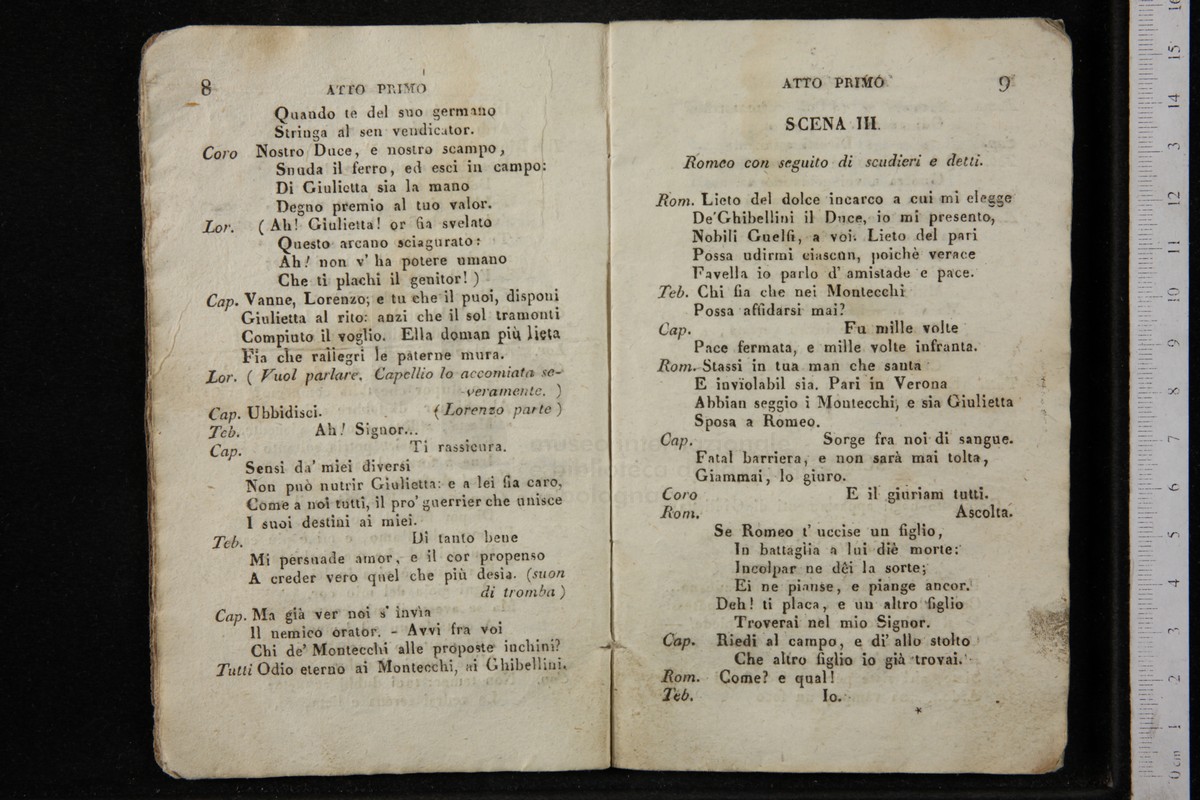 8 ATTO PRIMO
Quando te del suo germano
Stringa al sen vendicator.
Coro Nostro Duce, e nostro scampo,
Snuda il ferro, ed esci in campo:
Di Giulietta sia la mano
Degno premio al tuo valor.
Lor. ( Ah! Giulietta! or fia svelato
Questo arcano sciagurato:
Ah! non v' ha potere umano
Che ti plachi il genitor! )
Cap. Vanne, Lorenzo; e tu che il puoi, disponi
Giulietta al rito: anzi che il sol tramonti
Compiuto il voglio. Ella doman più lieta
Fia che rallegri le paterne mura.
Lor. ( Vuol parlare. Capellio lo accomiata se-
veramente. )
Cap. Ubbidisci. ( Lorenzo parte )
Teb. Ah! Signor...
Cap. Ti rassicura.
Sensi da' miei diversi
Non può nutrir Giulietta: e a lei fia caro,
Come a noi tutti, il pro' guerrier che unisce
I suoi destini ai miei.
Teb. Di tanto bene
Mi persuade amor, e il cor propenso
A creder vero quel che più desia. (suon
di tromba )
Cap. Ma già ver noi s' invia
Il nemico orator. - Avvi fra voi
Chi de' Montecchi alle proposte inchini?
Tutti Odio eterno ai Montecchi, ai Ghibellini.
ATTO PRIMO 9
SCENA III.
Romeo con seguito di scudieri e detti.
Rom. Lieto del dolce incarco a cui mi elegge
De'Ghibellini il Duce, io mi presento,
Nobili Guelfi, a voi. Lieto del pari
Possa udirmi ciascun, poichè verace
Favella io parlo d' amistade e pace.
Teb. Chi fia che nei Montecchi
Possa affidarsi mai?
Cap. Fu mille volte
Pace fermata, e mille volte infranta.
Rom. Stassi in tua man che santa
E inviolabil sia. Pari in Verona
Abbian seggio i Montecchi, e sia Giulietta
Sposa a Romeo.
Cap. Sorge fra noi di sangue.
Fatal barriera, e non sarà mai tolta,
Giammai, lo giuro.
Coro E il giuriam tutti.
Rom. Ascolta.
Se Romeo t' uccise un figlio,
In battaglia a lui diè morte:
Incolpar ne dêi la sorte;
Ei ne pianse, e piange ancor.
Deh! ti placa, e un altro figlio
Troverai nel mio Signor.
Cap. Riedi al campo, e di' allo stolto
Che altro figlio io già trovai.
Rom. Come? e qual!
Teb. Io.
*
museo internazionale
e biblioteca
bologna
0 cm 1 2 3 4 5 6 7 8 9 10 11 12 13 14 15 16